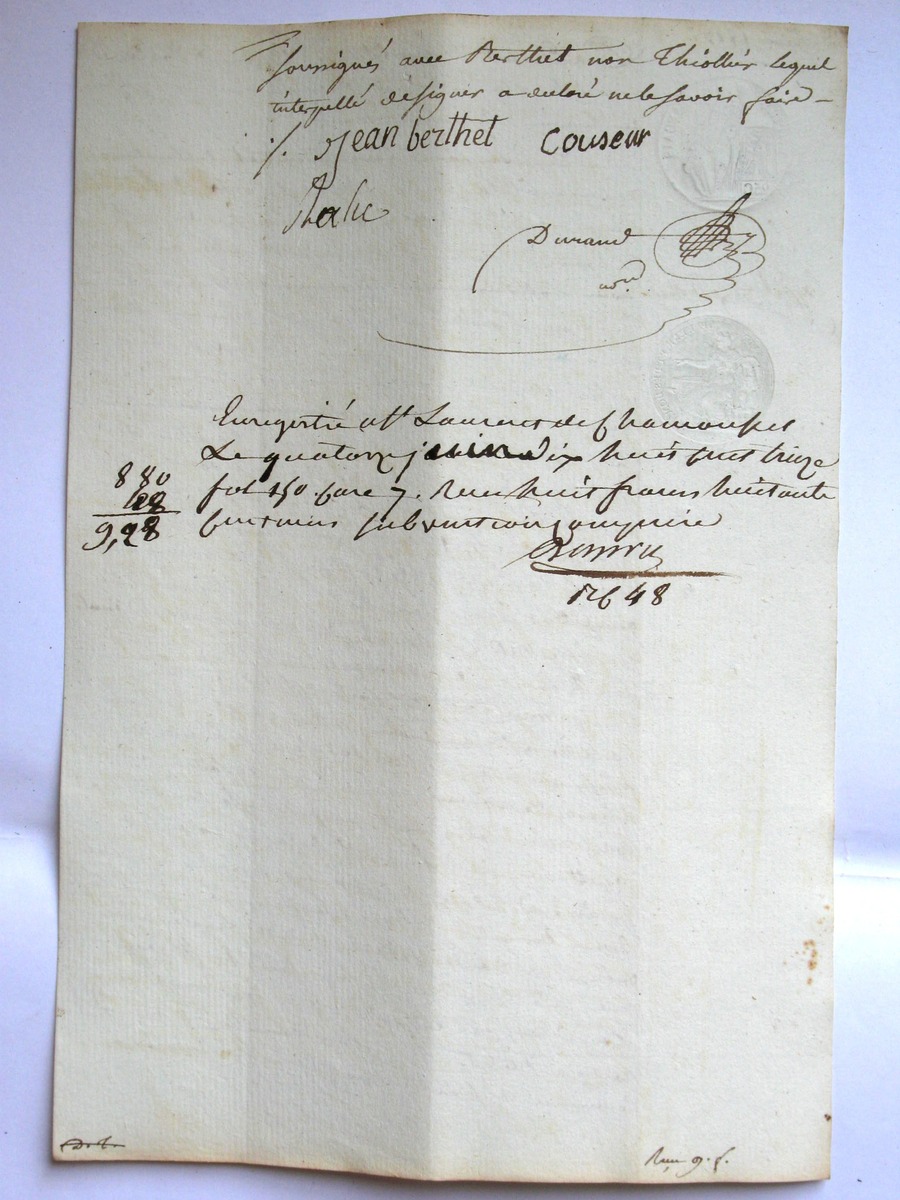 soussignés avec Berthet non Thiollier lequel
interpellé de signer a declaré ne le savoir faire –
jean berthet couseur
Durand
nore.
Enregistré a St Laurent de Chamousset
Le quatorze juin dix huit cent treize
fol 150. case 7. Reçu huit francs huitante
centimes subvention comprise
880
9,28
Nº 48
Reçu 9. f.